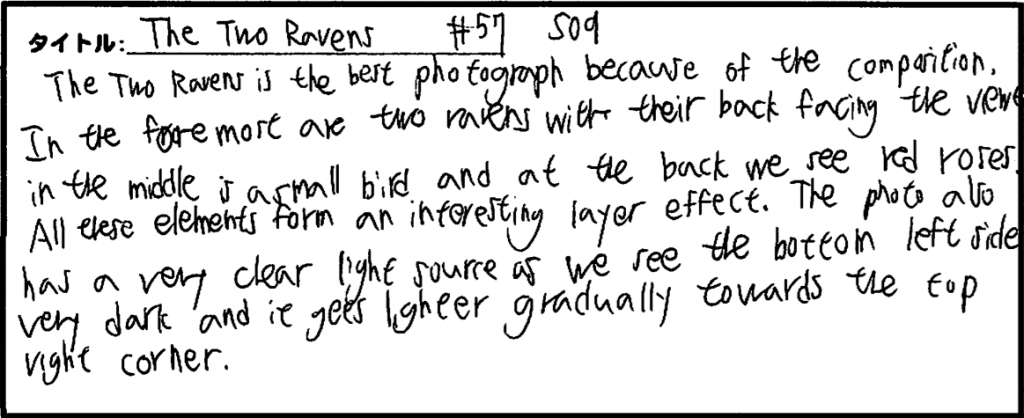 タイトル: The Two Ravens #57 S09
The Two Ravens is the best photograph because of the comparition.
In the foremost are two ravens with their back facing the view
in the middle is a small bird and at the back we see red roses.
All these elements form an interesting layer effect. The photo also
has a very clear light source as we see the bottom left side
very dark and it gets lighter gradually towards the top
right corner.